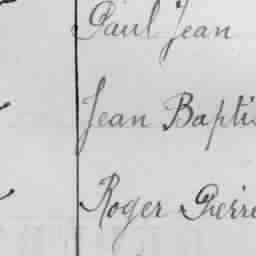 Paul Jean
Jean Baptis
Roger Pierre